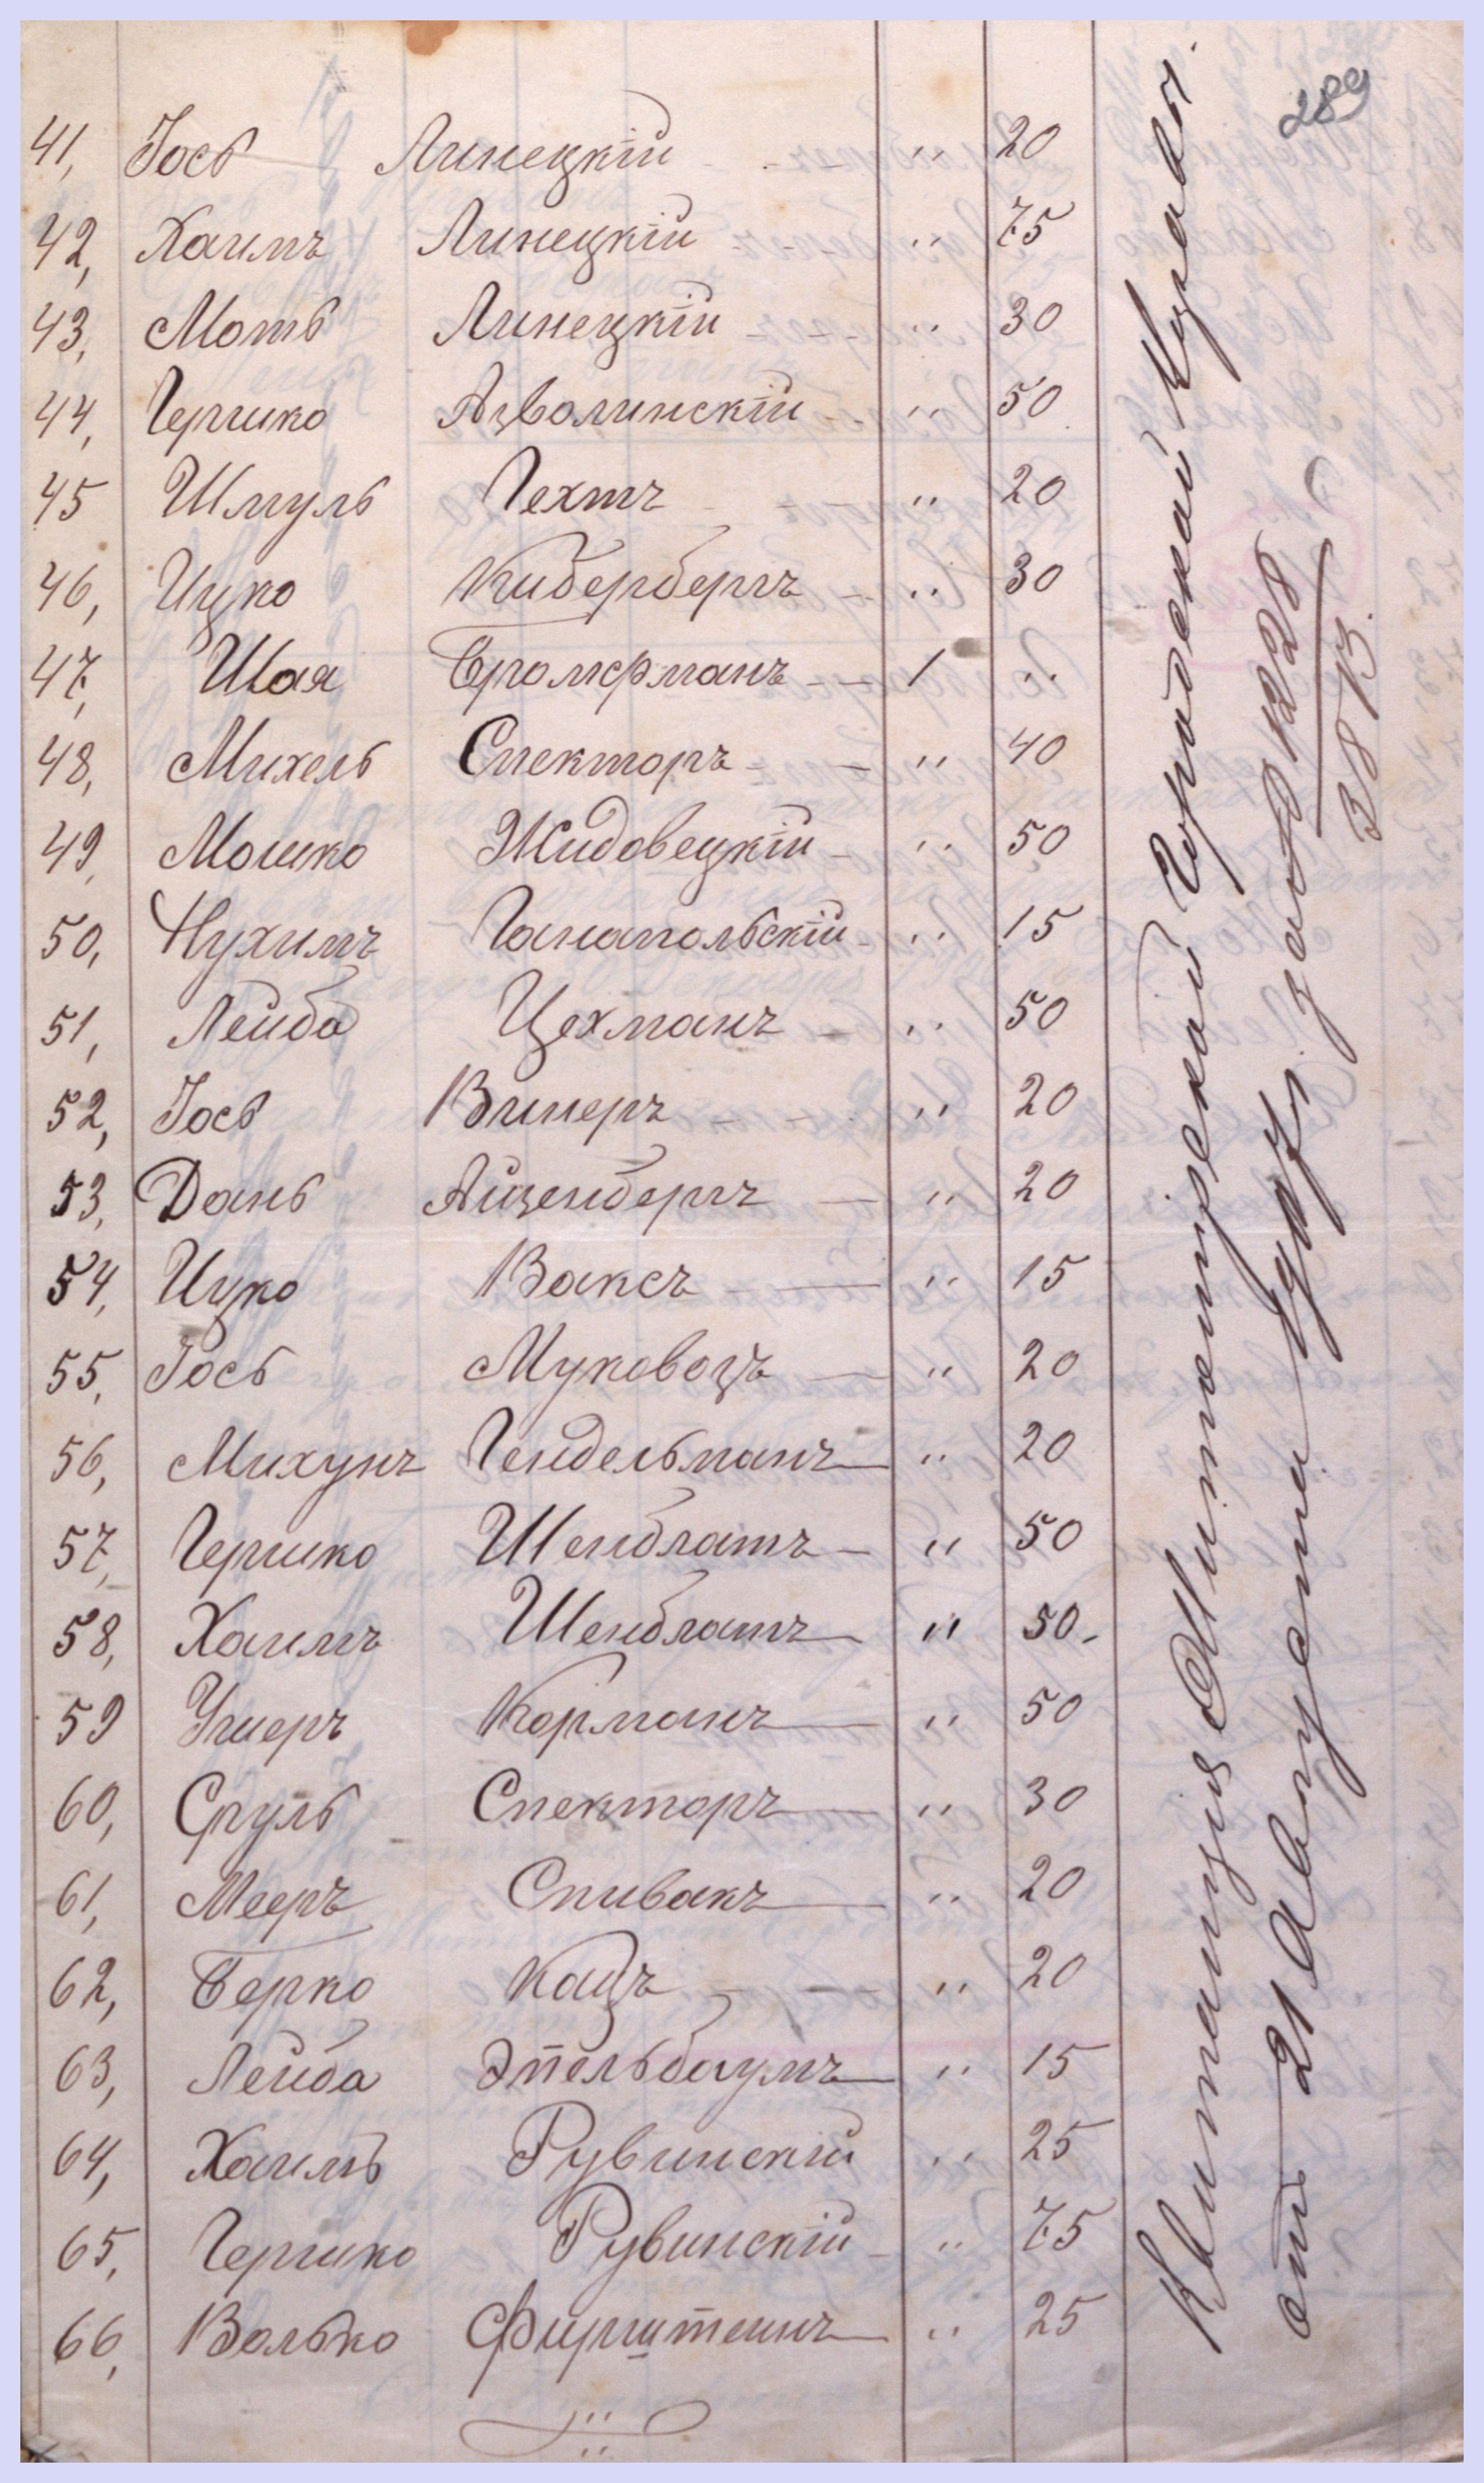 289
41, Іось Линецкій - - " 20
42, Хаимъ Линецкій - " 75
43, Моть Линецкій - - " 30
44, Гершко Азволинскій - " 50
45 Шмуль Гехтъ - " 20
46, Ицко Кибербергъ - " 30
47, Шая Бромерманъ - 1 "
48, Михель Спекторъ - - " 40
49, Мошко Жидовецкій - " 50
50, Нухимъ Ганапольскій - " 15
51, Лейба Цехманъ - " 50
52, Іось Винеръ - - " 20
53, Дань Айзенбергъ - " 20
54, Ицко Ваксъ - " 15
55, Іось Муковозъ - " 20
56, Михунъ Гендельманъ - " 20
57, Гершко Шенблатъ - " 50
58, Хаимъ Шенблатъ - " 50-
59 Ушеръ Корманъ - " 50
60, Сруль Спекторъ - " 30
61, Мееръ Спивакъ - " 20
62, Берко Кацъ - - " 20
63, Лейба Эпельбаумъ - " 15
64, Хаимъ Рувинскій " 25
65, Гершко Рувинскій - " 75
66, Волько Фирштеинъ - " 25
Квитанция Липовецкой Городской Управы
отъ 21 Августа за № 1228
3873.